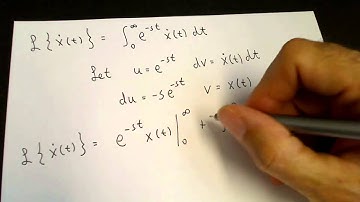 ℒ{ẋ(t)} = ∫₀^∞ e^{-st} ẋ(t) dt
Let u = e^{-st} dv = ẋ(t) dt
du = -se^{-st} v = x(t)
ℒ{ẋ(t)} = e^{-st} x(t) |₀^∞ +